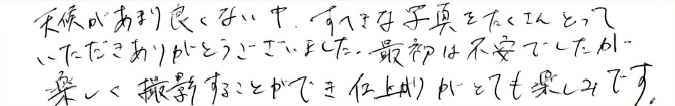 天候があまり良くない中、すてきな写真をたくさんとって
いただきありがとうございました。最初は不安でしたが
楽しく撮影することができ仕上がりがとても楽しみです。